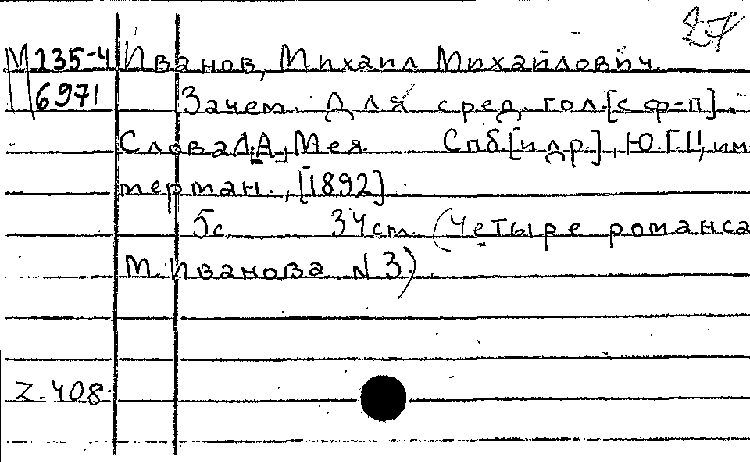 27
М 235-4 Иванов, Михаил Михайлович.
6971 Зачем. Для сред. гол. [с ф-п].
Слова Л.А. Мея Спб [и др.], Ю.Г. Цим
мерман., [1892]
5с. 34см. (Четыре романса
М. Иванова N 3).
Z. 408